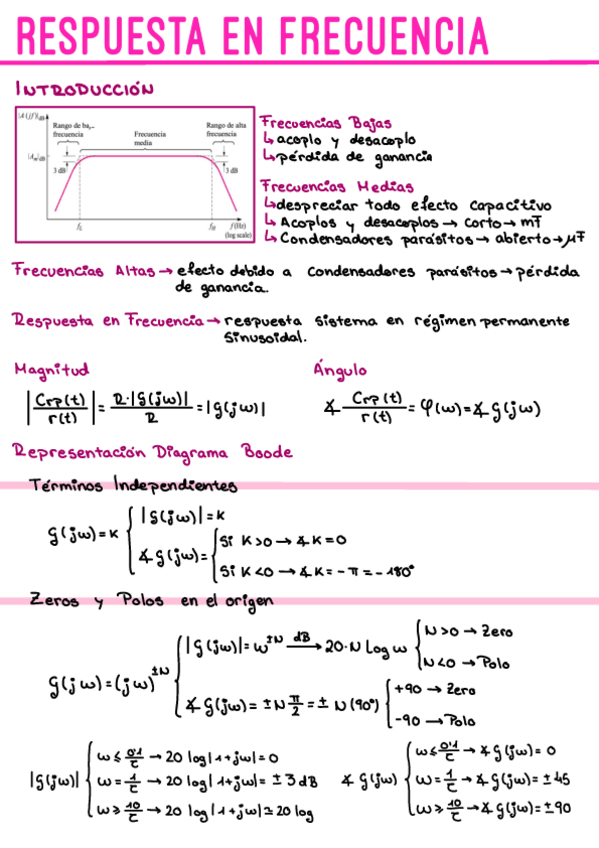 RESPUESTA EN FRECUENCIA
INTRODUCCIÓN
|A(jf)|dB
Rango de ba,.. frecuencia
Frecuencia media
Rango de alta frecuencia
|Am|dB
3 dB
3 dB
fL
fH
f(Hz)
(log scale)
Frecuencias Bajas
↳acoplo y desacoplo
↳pérdida de ganancia
Frecuencias Medias
↳despreciar todo efecto capacitivo
↳ Acoplos y desacoplos → corto → mF
↳ Condensadores parásitos → abierto → μF
Frecuencias Altas → efecto debido a condensadores parásitos → pérdida
de ganancia.
Respuesta en Frecuencia → respuesta sistema en régimen permanente
sinusoidal.
Magnitud
Ángulo
|Crp(t)/r(t)| = R·|G(jω)|/R = |G(jω)|
∡ Crp(t)/r(t) = φ(ω) = ∡ G(jω)
Representación Diagrama Boode
Términos Independientes
G(jω) = K { |G(jω)| = K
∡ G(jω) = { Si K>0 → ∡ K = 0
Si K<0 → ∡ K = -π = -180°
Zeros y Polos en el origen
G(jω) = (jω)^±N { |G(jω)| = ω^±N dB → 20·N Log ω { N>0 → Zero
N<0 → Polo
∡ G(jω) = ± N π/2 = ± N (90°) { +90 → Zero
-90 → Polo
|G(jω)| { ω ≤ 0'1/τ → 20 log|1+jω| = 0
ω = 1/τ → 20 log|1+jω| = ± 3 dB
ω ≥ 10/τ → 20 log|1+jω| ≃ 20 log
∡ G(jω) { ω ≤ 0'1/τ → ∡ G(jω) = 0
ω = 1/τ → ∡ G(jω) = ± 45
ω ≥ 10/τ → ∡ G(jω) = ± 90